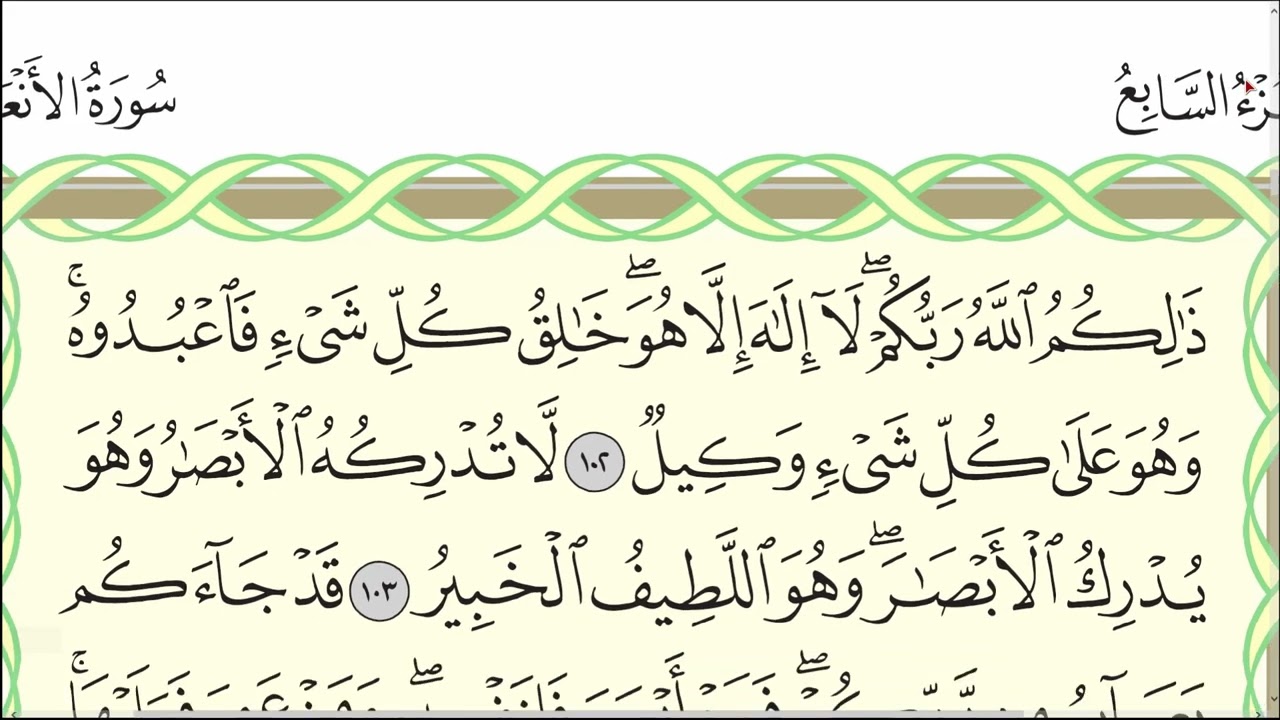 زْءُ السَّابِعُ
سُورَةُ الأَنْعَ
ذَٰلِكُمُ ٱللَّهُ رَبُّكُمْ ۖ لَآ إِلَٰهَ إِلَّا هُوَ ۖ خَٰلِقُ كُلِّ شَىْءٍ فَٱعْبُدُوهُ ۚ
وَهُوَ عَلَىٰ كُلِّ شَىْءٍ وَكِيلٌ ١٠٢ لَّا تُدْرِكُهُ ٱلْأَبْصَٰرُ وَهُوَ
يُدْرِكُ ٱلْأَبْصَٰرَ ۖ وَهُوَ ٱللَّطِيفُ ٱلْخَبِيرُ ١٠٣ قَدْ جَآءَكُم